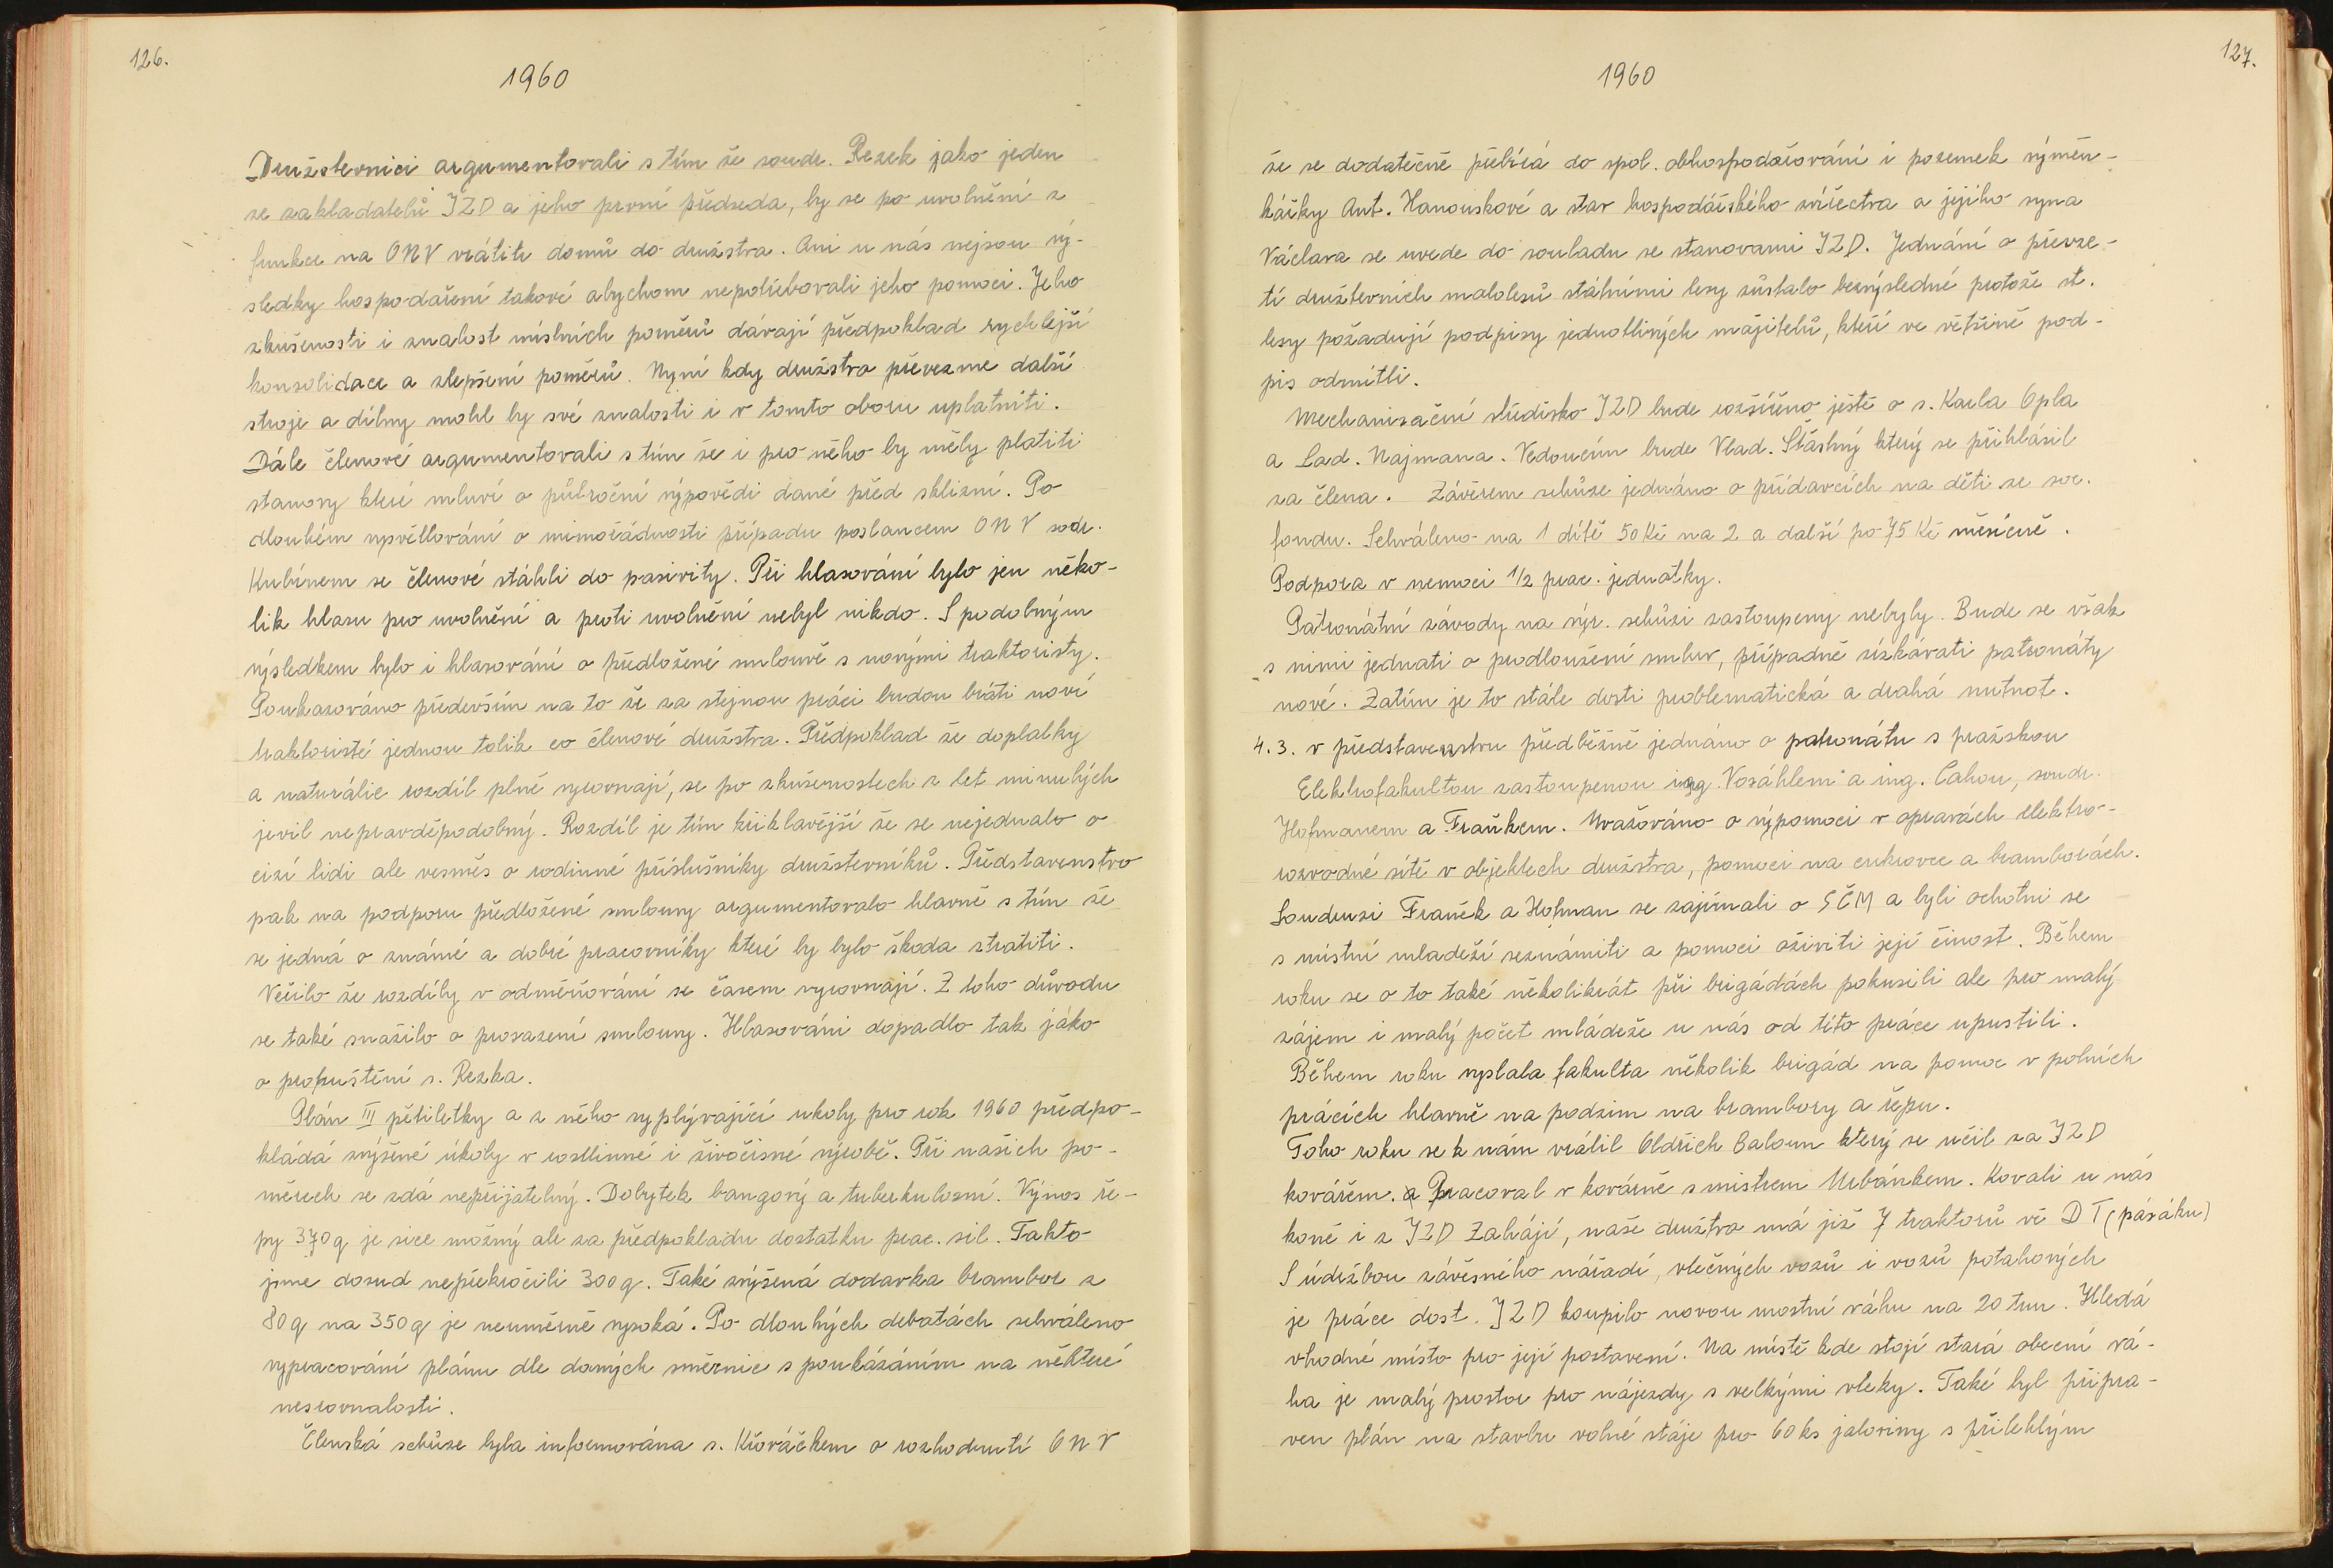 126.
1960
Družstevníci argumentovali s tím že soudr. Rezek jako jeden
ze zakladatelů JZD a jeho první předseda, by se po uvolnění z
funkce na ONV vrátit domů do družstva. Ani u nás nejsou vý-
sledky hospodaření takové abychom nepotřebovali jeho pomoci. Jeho
zkušenosti i znalost místních poměrů dávají předpoklad rychlejší
konsolidace a zlepšení poměrů. Nyní kdy družstvo převezme další
stroje a dílny mohl by své znalosti i v tomto oboru uplatniti.
Dále členové argumentovali s tím že i pro něho by měly platiti
stanovy které mluví o půlroční výpovědi dané před sklizní. Po
dlouhém vysvětlování o mimořádnosti případu poslancem ONV sodr.
Kubínem se členové stáhli do pasivity. Při hlasování bylo jen něko-
lik hlasu pro uvolnění a proti uvolnění nebyl nikdo. S podobným
výsledkem bylo i hlasování o předložené smlouvě s novými traktoristy.
Poukazováno především na to že za stejnou práci budou bráti noví
traktoristé jednou tolik co členové družstva. Předpoklad že doplatky
a naturálie rozdíl plně vyrovnají, se po zkušenostech z let minulých
jevil nepravděpodobný. Rozdíl je tím křiklavější že se nejednalo o
cizí lidi ale vesměs o rodinné příslušníky družstevníků. Představenstvo
pak na podporu předložené smlouvy argumentovalo hlavně s tím že
se jedná o známé a dobré pracovníky které by bylo škoda stratiti.
Věřilo že rozdíly v odměňování se časem vyrovnají. Z toho důvodu
se také snažilo o prosazení smlouvy. Hlasováni dopadlo tak jáko
o propuštění s. Rezka.
Plán III pětiletky a z něho vyplývající ukoly pro rok 1960 předpo-
kládá zvýšené úkoly v rostlinné i živočisné výrobě. Při našich po-
měrech se zdá nepřijatelný. Dobytek bangový a tuberkulosní. Výnos ře-
py 370 q je sice možný ale za předpokladu dostatku prac. sil. Takto
jsme dosud nepřekročili 300 q. Také zvýšená dodavka brambor z
80 q na 350 q je neuměrně vysoká. Po dlouhých debatách schváleno
vypracování plánu dle daných směrnic s poukázáním na některé
nesrovnalosti.
Členská schůze byla informována s. Křováčkem o rozhodnutí ONV
127.
1960
že se dodatečně přebírá do spol. obhospodařování i pozemek výměn-
kářky Ant. Hanouskové a stav hospodářského zvířectva a jejího syna
Václava se uvede do souladu se stanovami JZD. Jednání o převze-
tí družtevních malolesů státními lesy zůstalo bezvýsledné protože st.
lesy požadují podpisy jednotlivých majitelů, kteří ve většině pod-
pis odmítli.
Mechanisační středisko JZD bude rozšířeno ještě o s. Karla Opla
a Lad. Najmana. Vedoucím bude Vlad. Šťastný který se přihlásil
za člena. Závěrem schůze jednáno o přídavcích na děti ze soc.
fondu. Schváleno na 1 dítě 50 Kč na 2 a další po 75 Kč měsíčně.
Podpora v nemoci 1/2 prac. jednotky.
Patronátní závody na výr. schůzi zastoupeny nebyly. Bude se však
s nimi jednati o prodloužení smluv, případně získávati patronáty
nové. Zatím je to stále dosti problematická a drahá nutnot.
4.3. v představenstvu předběžně jednáno o patronátu s pražskou
Elektrofakultou zastoupenou ing. Vosáhlem a ing. Cahou, soudr.
Hofmanem a Fraňkem. Uvažováno o výpomoci v opravách elektro-
rozvodné sítě v objektech družstva, pomoci na cukrovce a bramborách.
Soudruzi Franěk a Hofman se zajímali o SČM a byli ochotni se
s místní mladeží seznámiti a pomoci oživiti její činost. Během
roku se o to také několikrát při brigádách pokusili ale pro malý
zájem i malý počet mládeže u nás od této práce upustili.
Během roku vyslala fakulta několik brigád na pomoc v polních
prácích hlavně na podzim na brambory a řepu.
Toho roku se k nám vrátil Oldřich Baloun který se učil za JZD
kovářem. a Pracoval v kovárně s mistrem Urbánkem. Kovali u nás
koně i z JZD Zahájí, naše družtvo má již 7 traktorů vč DT (pásáku)
S údržbou závěsného nářadí, vlečných vozů i vozů potahových
je práce dost. JZD koupilo novou mostní váhu na 20 tun. Hledá
vhodné místo pro její postavení. Na místě kde stojí stará obecní vá-
ha je malý prostor pro nájezdy s velkými vleky. Také byl připra-
ven plán na stavbu volné stáje pro 60 ks jaloviny s přilehlým